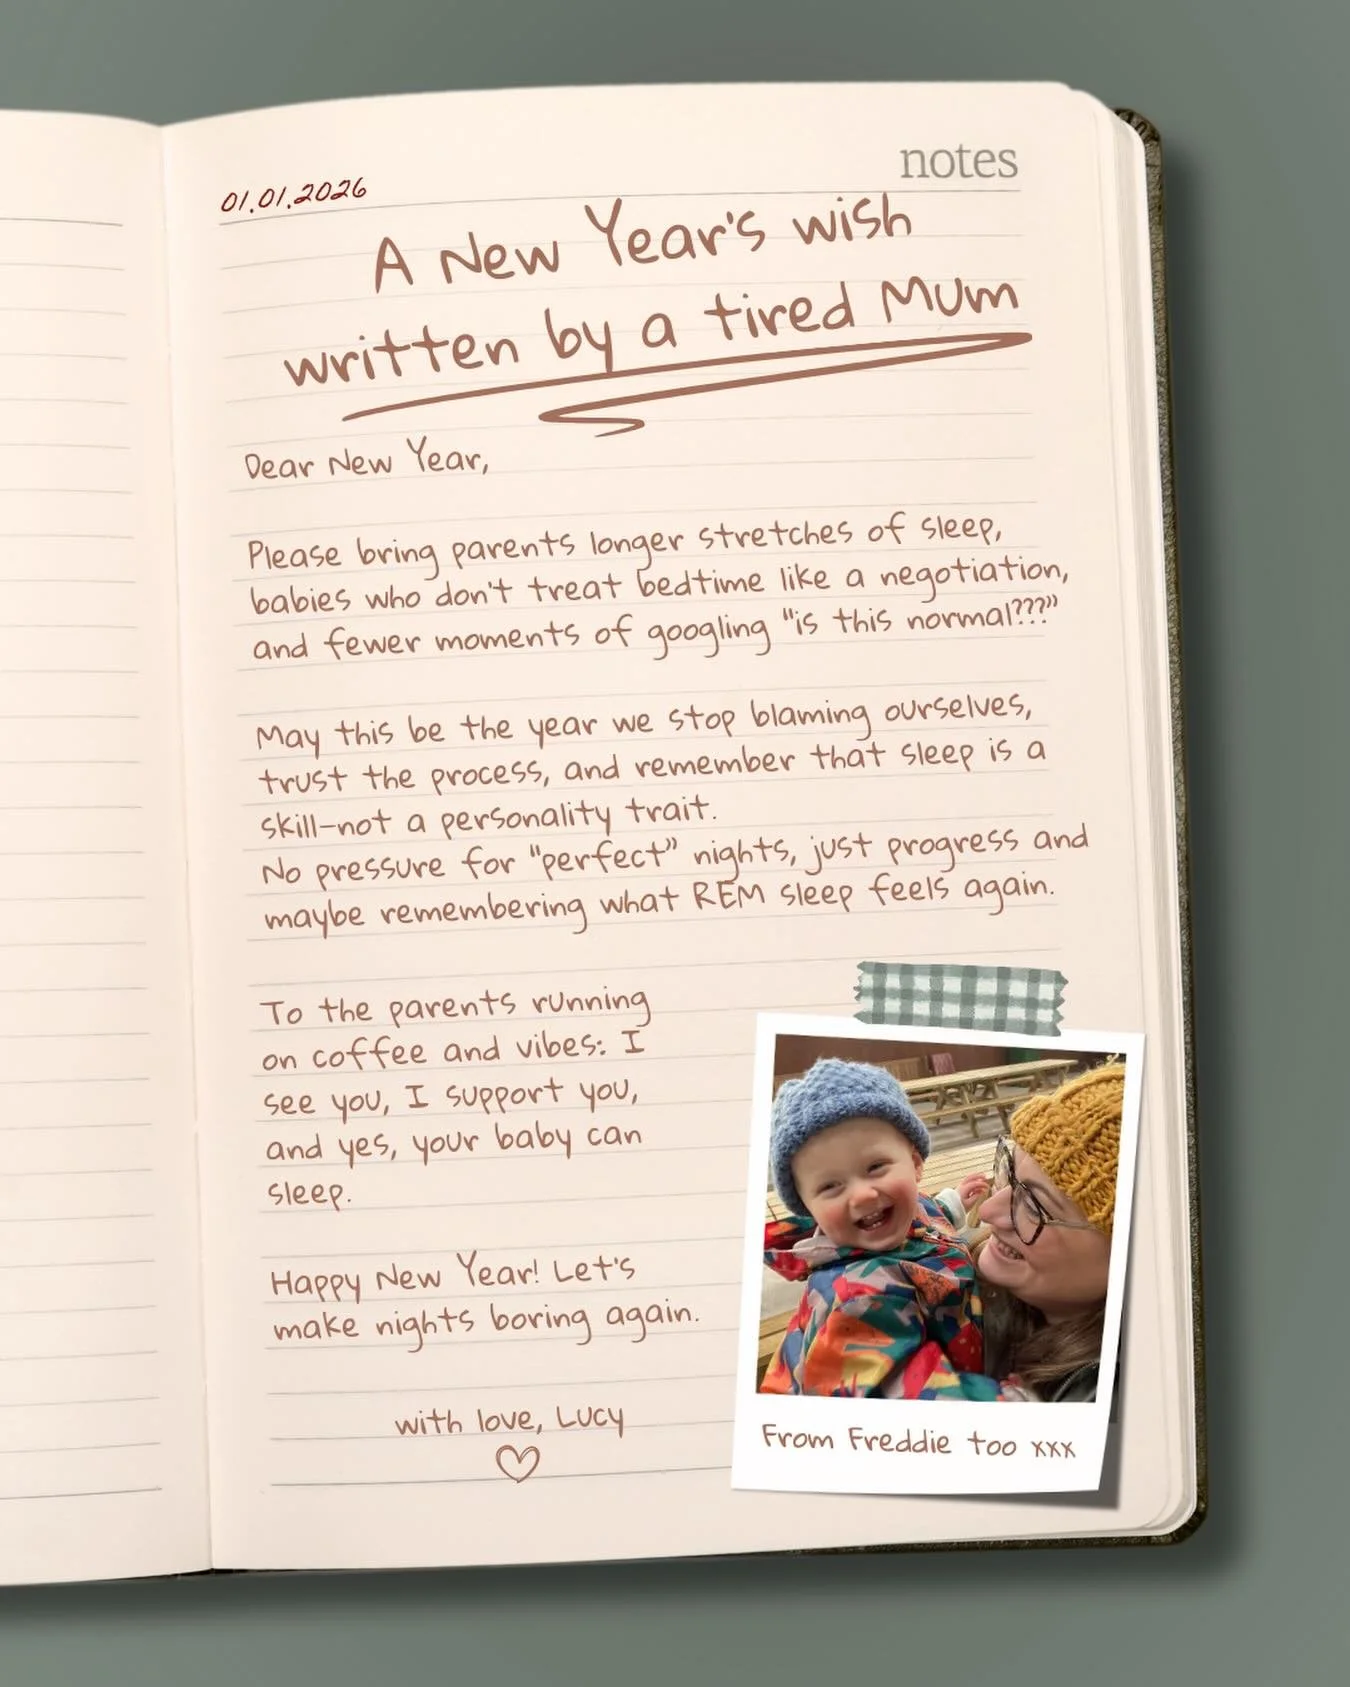 notes
01.01.2026
A New Year's wish
written by a tired Mum
Dear New Year,
Please bring parents longer stretches of sleep,
babies who don't treat bedtime like a negotiation,
and fewer moments of googling "is this normal???"
May this be the year we stop blaming ourselves,
trust the process, and remember that sleep is a
skill—not a personality trait.
No pressure for "perfect" nights, just progress and
maybe remembering what REM sleep feels again.
To the parents running
on coffee and vibes: I
see you, I support you,
and yes, your baby can
sleep.
Happy New Year! Let's
make nights boring again.
with love, Lucy
From Freddie too xxx